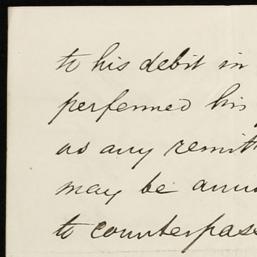 to his debit in
perfermed his
as any remitt
may be annu
to counterpass